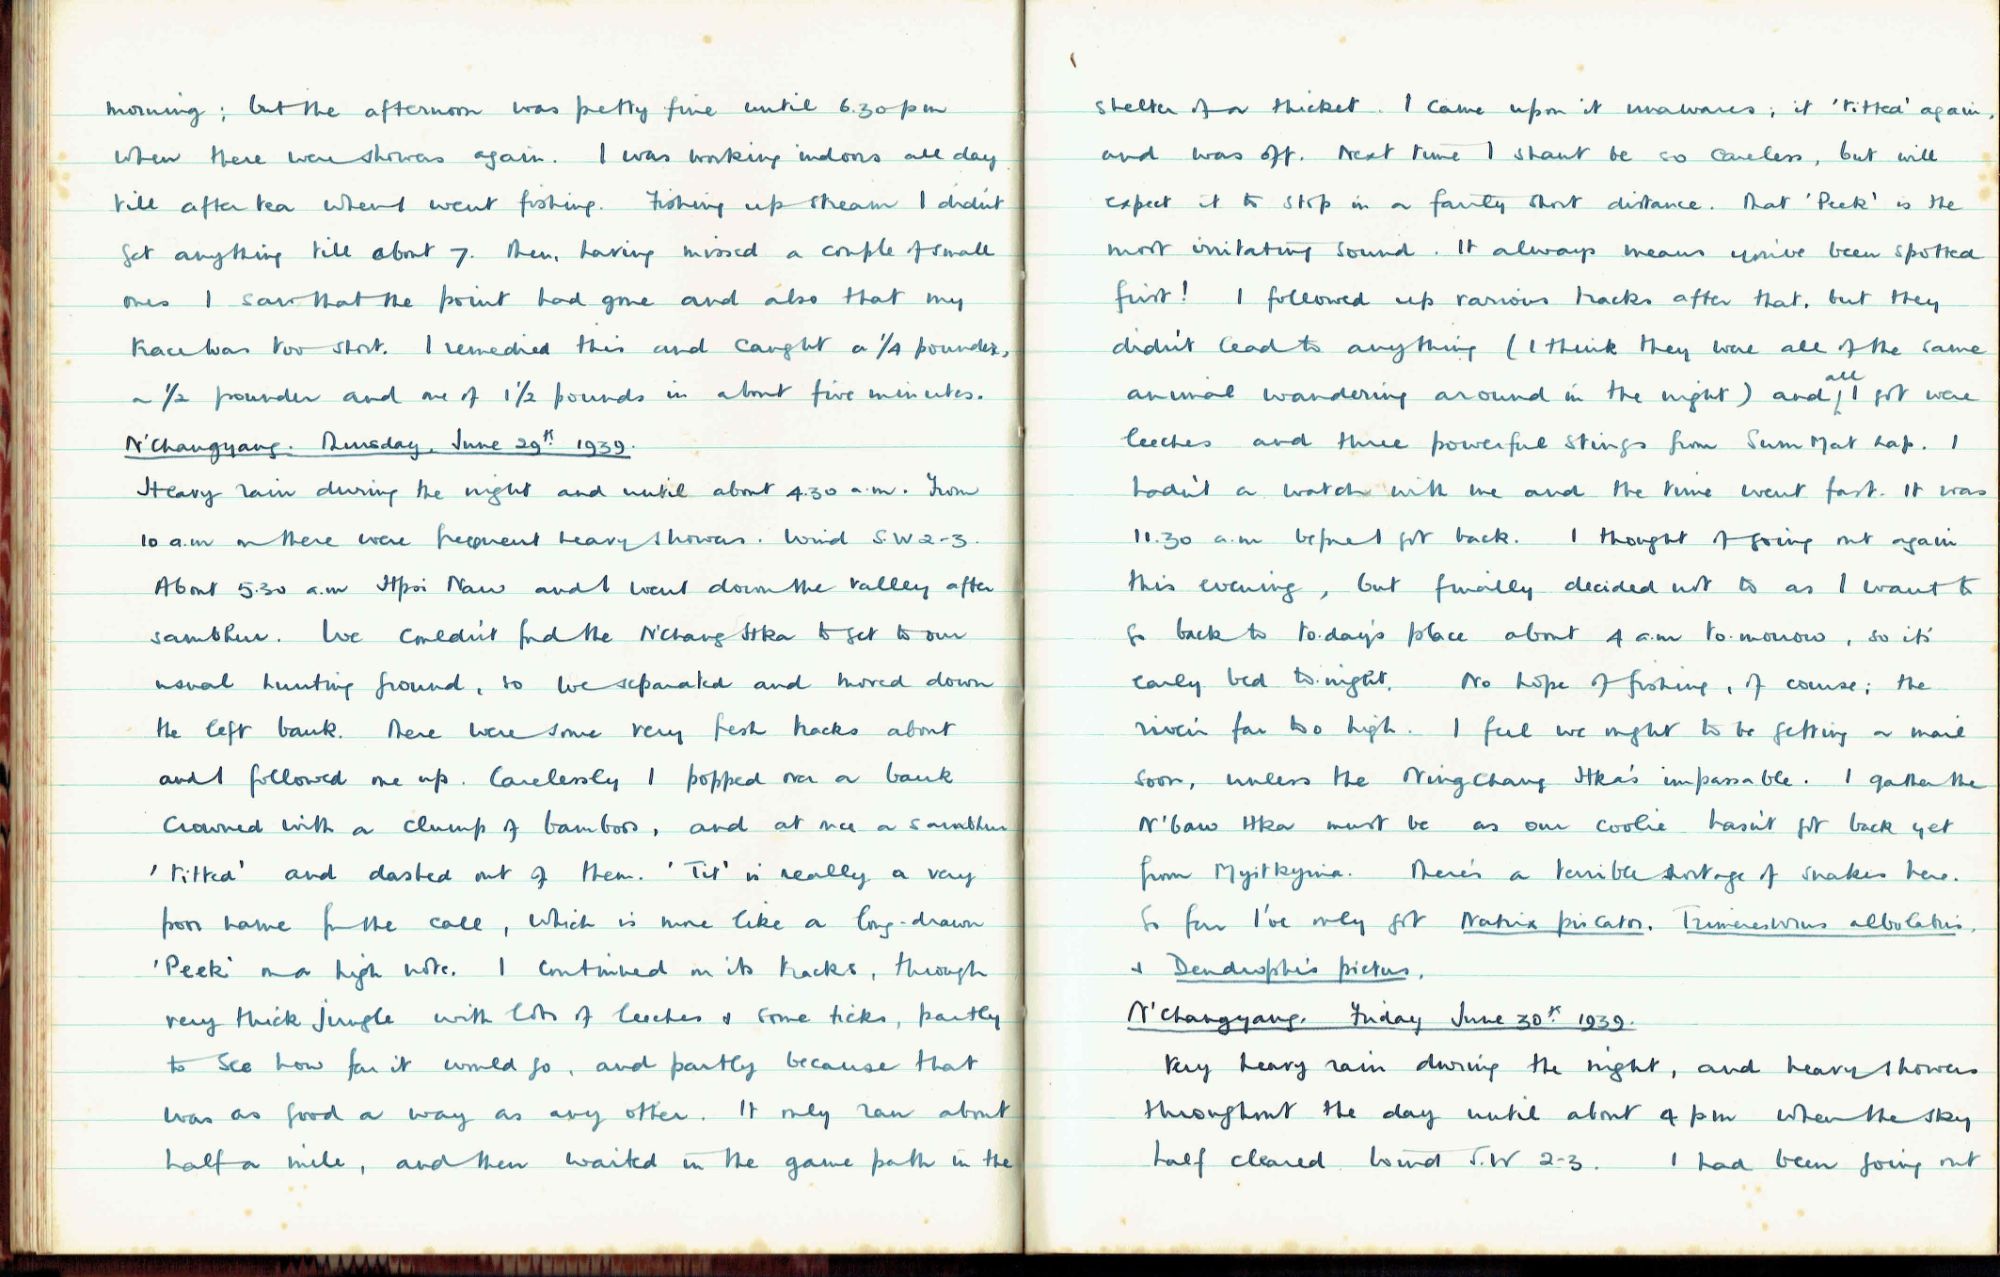 morning; but the afternoon was pretty fine until 6.30 pm
when there were showers again. I was working indoors all day
till after tea when I went fishing. Fishing up stream I didn't
get anything till about 7. Then, having missed a couple of small
ones I saw that the point had gone and also that my
trace was too short. I remedied this and caught a 1/4 pounder,
a 1/2 pounder and one of 1 1/2 pounds in about five minutes.
N'Changyang. Thursday, June 29th 1939.
Heavy rain during the night and until about 4.30 a.m. From
10 a.m on there were frequent heavy showers. Wind S.W 2-3.
About 5.30 a.m Htpoi Naw and I went down the valley after
sambhur. We couldn't ford the N'Chang Hka to get to our
usual hunting ground, so we separated and moved down
the left bank. There were some very fresh tracks about
and I followed one up. Carelessly I popped over a bank
crowned with a clump of bamboos, and at once a sambhur
'titted' and dashed out of them. 'Tit' is really a very
poor name for the call, which is more like a long-drawn
'Peek' on a high note. I continued on its tracks, through
very thick jungle with lots of leeches & some ticks, partly
to see how far it would go, and partly because that
was as good a way as any other. It only ran about
half a mile, and then waited in the game path in the
shelter of a thicket. I came upon it unawares; it 'titted' again,
and was off. Next time I shant be so careless, but will
expect it to stop in a fairly short distance. That 'Peek' is the
most irritating sound. It always means you've been spotted
first! I followed up various tracks after that, but they
didn't lead to anything (I think they were all of the same
animal wandering around in the night) and all I got were
leeches and three powerful stings from Sum Mat hap. I
hadn't a watch with me and the time went fast. It was
11.30 a.m before I got back. I thought of going out again
this evening, but finally decided not to as I want to
go back to to.day's place about 4 a.m to.morrow, so it's
early bed to.night. No hope of fishing, of course; the
river's far too high. I feel we ought to be getting a mail
soon, unless the Ningchang Hka's impassable. I gather the
N'baw Hka must be as our coolie hasn't got back yet
from Myitkyina. There's a terrible shortage of snakes here.
So far I've only got Natrix piscator, Trimeresurus albolabris,
& Dendrophis pictus.
N'Changyang. Friday June 30th 1939.
Very heavy rain during the night, and heavy showers
throughout the day until about 4 pm when the sky
half cleared. Wind S.W 2-3. I had been going out